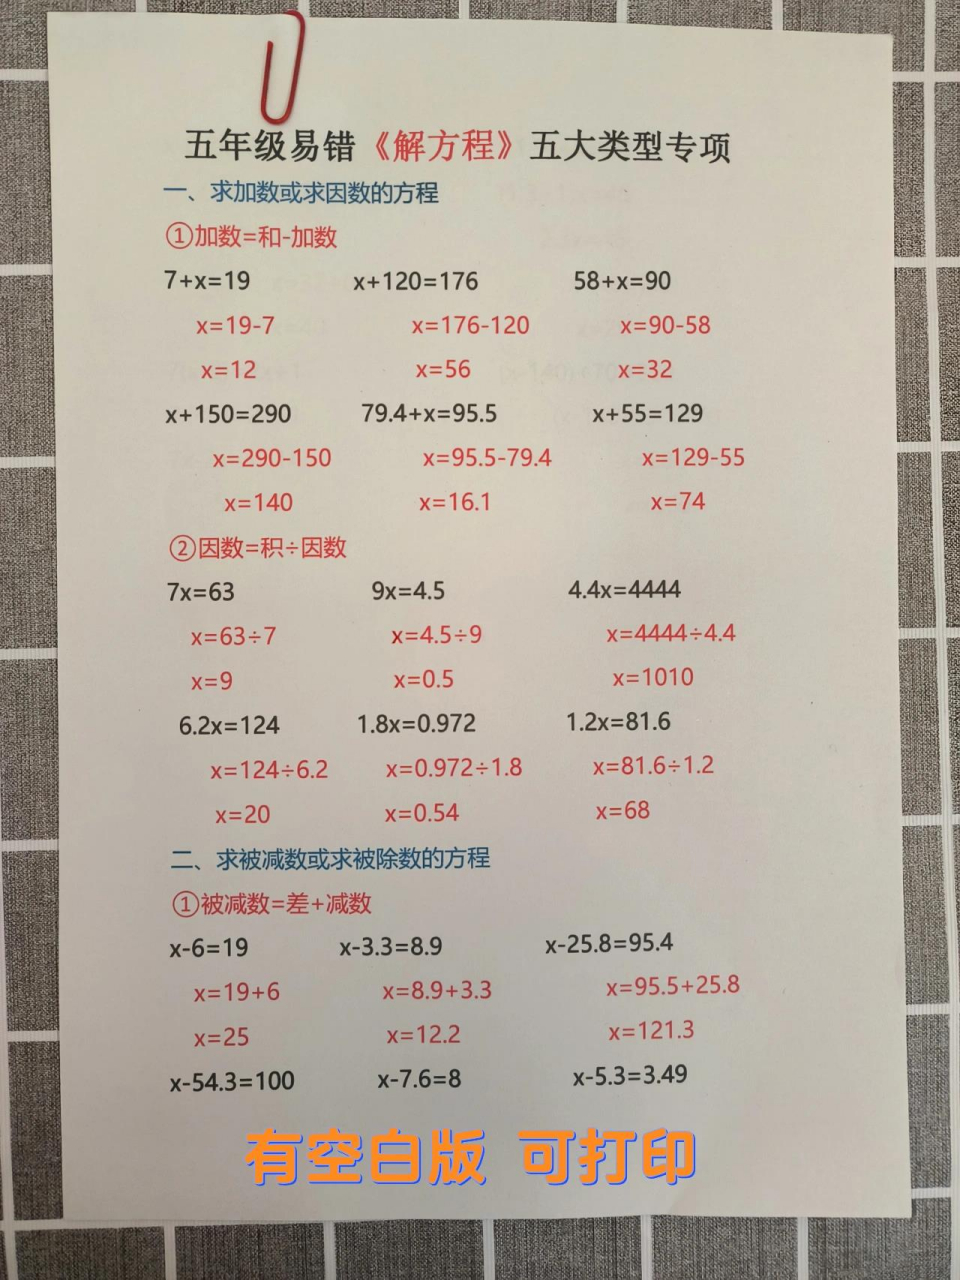 五年级易错《解方程》五大类型专项
一、求加数或求因数的方程
①加数=和-加数
7+x=19 x+120=176 58+x=90
x=19-7 x=176-120 x=90-58
x=12 x=56 x=32
x+150=290 79.4+x=95.5 x+55=129
x=290-150 x=95.5-79.4 x=129-55
x=140 x=16.1 x=74
②因数=积÷因数
7x=63 9x=4.5 4.4x=4444
x=63÷7 x=4.5÷9 x=4444÷4.4
x=9 x=0.5 x=1010
6.2x=124 1.8x=0.972 1.2x=81.6
x=124÷6.2 x=0.972÷1.8 x=81.6÷1.2
x=20 x=0.54 x=68
二、求被减数或求被除数的方程
①被减数=差+减数
x-6=19 x-3.3=8.9 x-25.8=95.4
x=19+6 x=8.9+3.3 x=95.5+25.8
x=25 x=12.2 x=121.3
x-54.3=100 x-7.6=8 x-5.3=3.49
有空白版 可打印